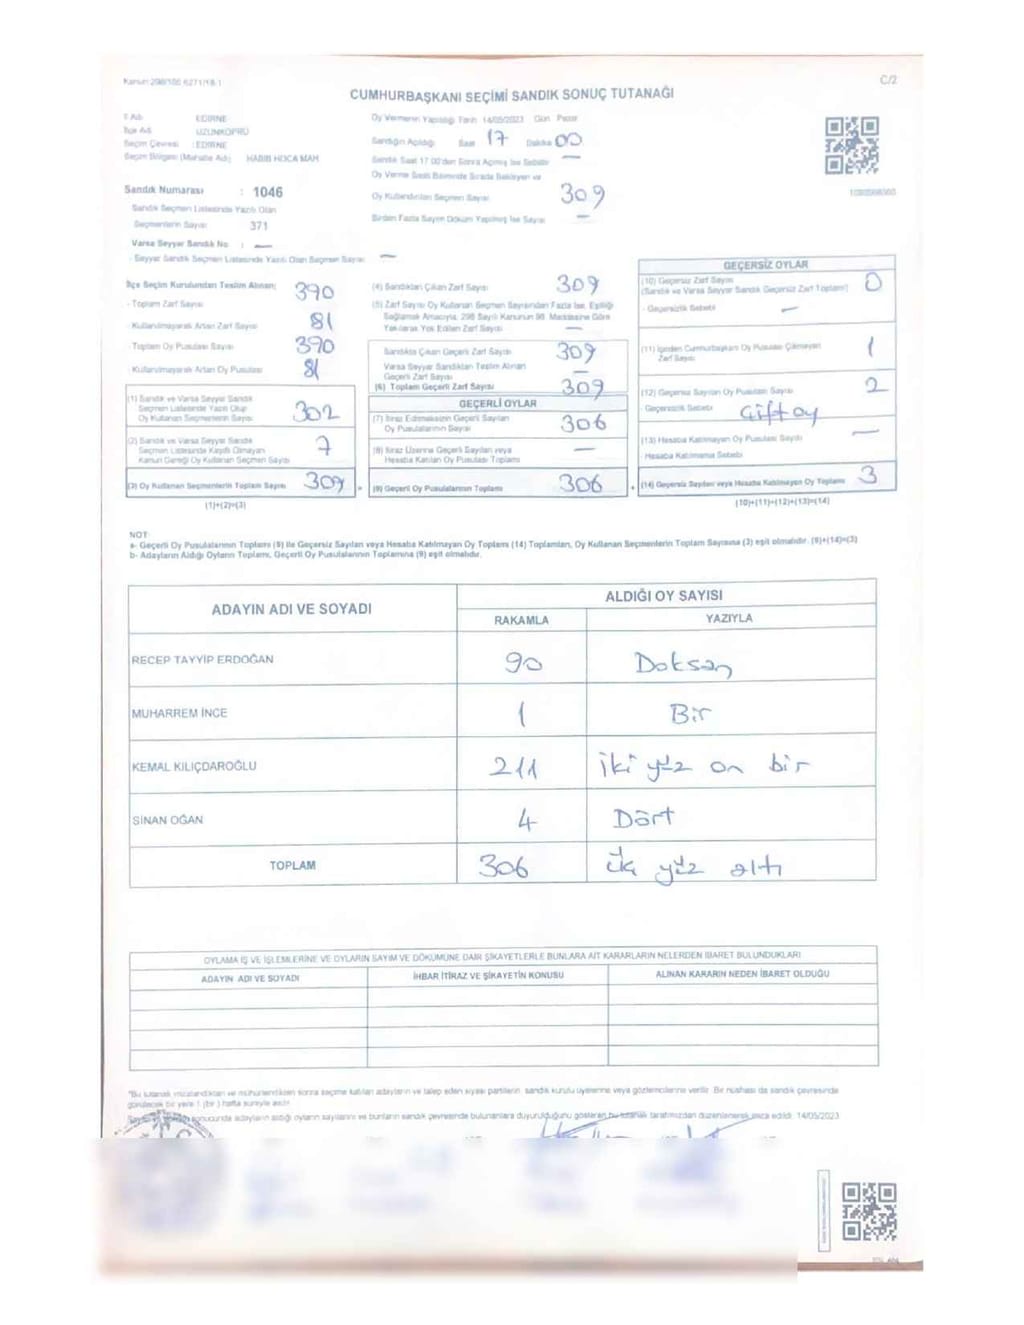 Kanun 298/105 6271/18-1
C/2
CUMHURBAŞKANI SEÇİMİ SANDIK SONUÇ TUTANAĞI
İl Adı : EDİRNE
İlçe Adı : UZUNKÖPRÜ
Seçim Çevresi : EDİRNE
Seçim Bölgesi (Mahalle Adı) : HABİB HOCA MAH
Sandık Numarası : 1046
Sandık Seçmen Listesinde Yazılı Olan
Seçmenlerin Sayısı 371
Varsa Seyyar Sandık No : —
- Seyyar Sandık Seçmen Listesinde Yazılı Olan Seçmen Sayısı —
Oy Vermenin Yapıldığı Tarih 14/05/2023 Gün Pazar
Sandığın Açıldığı Saat 17 Dakika 00
Sandık Saat 17.00'den Sonra Açılmış İse Sebebi —
Oy Verme Saati Bitiminde Sırada Bekleyen ve
Oy Kullandırılan Seçmen Sayısı 309
Birden Fazla Sayım Döküm Yapılmış İse Sayısı —
İlçe Seçim Kurulundan Teslim Alınan;
- Toplam Zarf Sayısı 390
- Kullanılmayarak Artan Zarf Sayısı 81
- Toplam Oy Pusulası Sayısı 390
- Kullanılmayarak Artan Oy Pusulası 81
(1) Sandık ve Varsa Seyyar Sandık
Seçmen Listesinde Yazılı Olup
Oy Kullanan Seçmenlerin Sayısı 302
(2) Sandık ve Varsa Seyyar Sandık
Seçmen Listesinde Kayıtlı Olmayan
Kanun Gereği Oy Kullanan Seçmen Sayısı 7
(3) Oy Kullanan Seçmenlerin Toplam Sayısı 309
(1)+(2)=(3)
(4) Sandıktan Çıkan Zarf Sayısı 309
(5) Zarf Sayısı Oy Kullanan Seçmen Sayısından Fazla İse, Eşitliği
Sağlamak Amacıyla, 298 Sayılı Kanunun 98. Maddesine Göre
Yakılarak Yok Edilen Zarf Sayısı —
Sandıkta Çıkan Geçerli Zarf Sayısı 309
Varsa Seyyar Sandıktan Teslim Alınan
Geçerli Zarf Sayısı —
(6) Toplam Geçerli Zarf Sayısı 309
GEÇERLİ OYLAR
(7) İtiraz Edilmeksizin Geçerli Sayılan
Oy Pusulalarının Sayısı 306
(8) İtiraz Üzerine Geçerli Sayılan veya
Hesaba Katılan Oy Pusulası Toplamı —
= (9) Geçerli Oy Pusulalarının Toplamı 306
GEÇERSİZ OYLAR
(10) Geçersiz Zarf Sayısı
(Sandık ve Varsa Seyyar Sandık Geçersiz Zarf Toplamı) 0
- Geçersizlik Sebebi —
(11) İçinden Cumhurbaşkanı Oy Pusulası Çıkmayan
Zarf Sayısı 1
(12) Geçersiz Sayılan Oy Pusulası Sayısı 2
Geçersizlik Sebebi Çift oy
(13) Hesaba Katılmayan Oy Pusulası Sayısı —
- Hesaba Katılmama Sebebi
+ (14) Geçersiz Sayılan veya Hesaba Katılmayan Oy Toplamı 3
(10)+(11)+(12)+(13)=(14)
NOT
a- Geçerli Oy Pusulalarının Toplamı (9) ile Geçersiz Sayılan veya Hesaba Katılmayan Oy Toplamı (14) Toplamları, Oy Kullanan Seçmenlerin Toplam Sayısına (3) eşit olmalıdır. (9)+(14)=(3)
b- Adayların Aldığı Oyların Toplamı, Geçerli Oy Pusulalarının Toplamına (9) eşit olmalıdır.
ADAYIN ADI VE SOYADI
ALDIĞI OY SAYISI
RAKAMLA YAZIYLA
RECEP TAYYİP ERDOĞAN 90 Doksan
MUHARREM İNCE 1 Bir
KEMAL KILIÇDAROĞLU 211 iki yüz on bir
SİNAN OĞAN 4 Dört
TOPLAM 306 üç yüz altı
OYLAMA İŞ VE İŞLEMLERİNE VE OYLARIN SAYIM VE DÖKÜMÜNE DAİR ŞİKAYETLERLE BUNLARA AİT KARARLARIN NELERDEN İBARET BULUNDUKLARI
ADAYIN ADI VE SOYADI İHBAR İTİRAZ VE ŞİKAYETİN KONUSU ALINAN KARARIN NEDEN İBARET OLDUĞU
*Bu tutanak imzalandıktan ve mühürlendikten sonra seçime katılan adayların ve talep eden siyasi partilerin sandık kurulu üyelerine veya gözlemcilerine verilir. Bir nüshası da sandık çevresinde
görülecek bir yere 1 (bir) hafta süreyle asılır.
sonucunda adayların aldığı oyların sayılarını ve bunların sandık çevresinde bulunanlara duyurulduğunu gösteren bu tutanak tarafımızdan düzenlenerek imza edildi. 14/05/2023